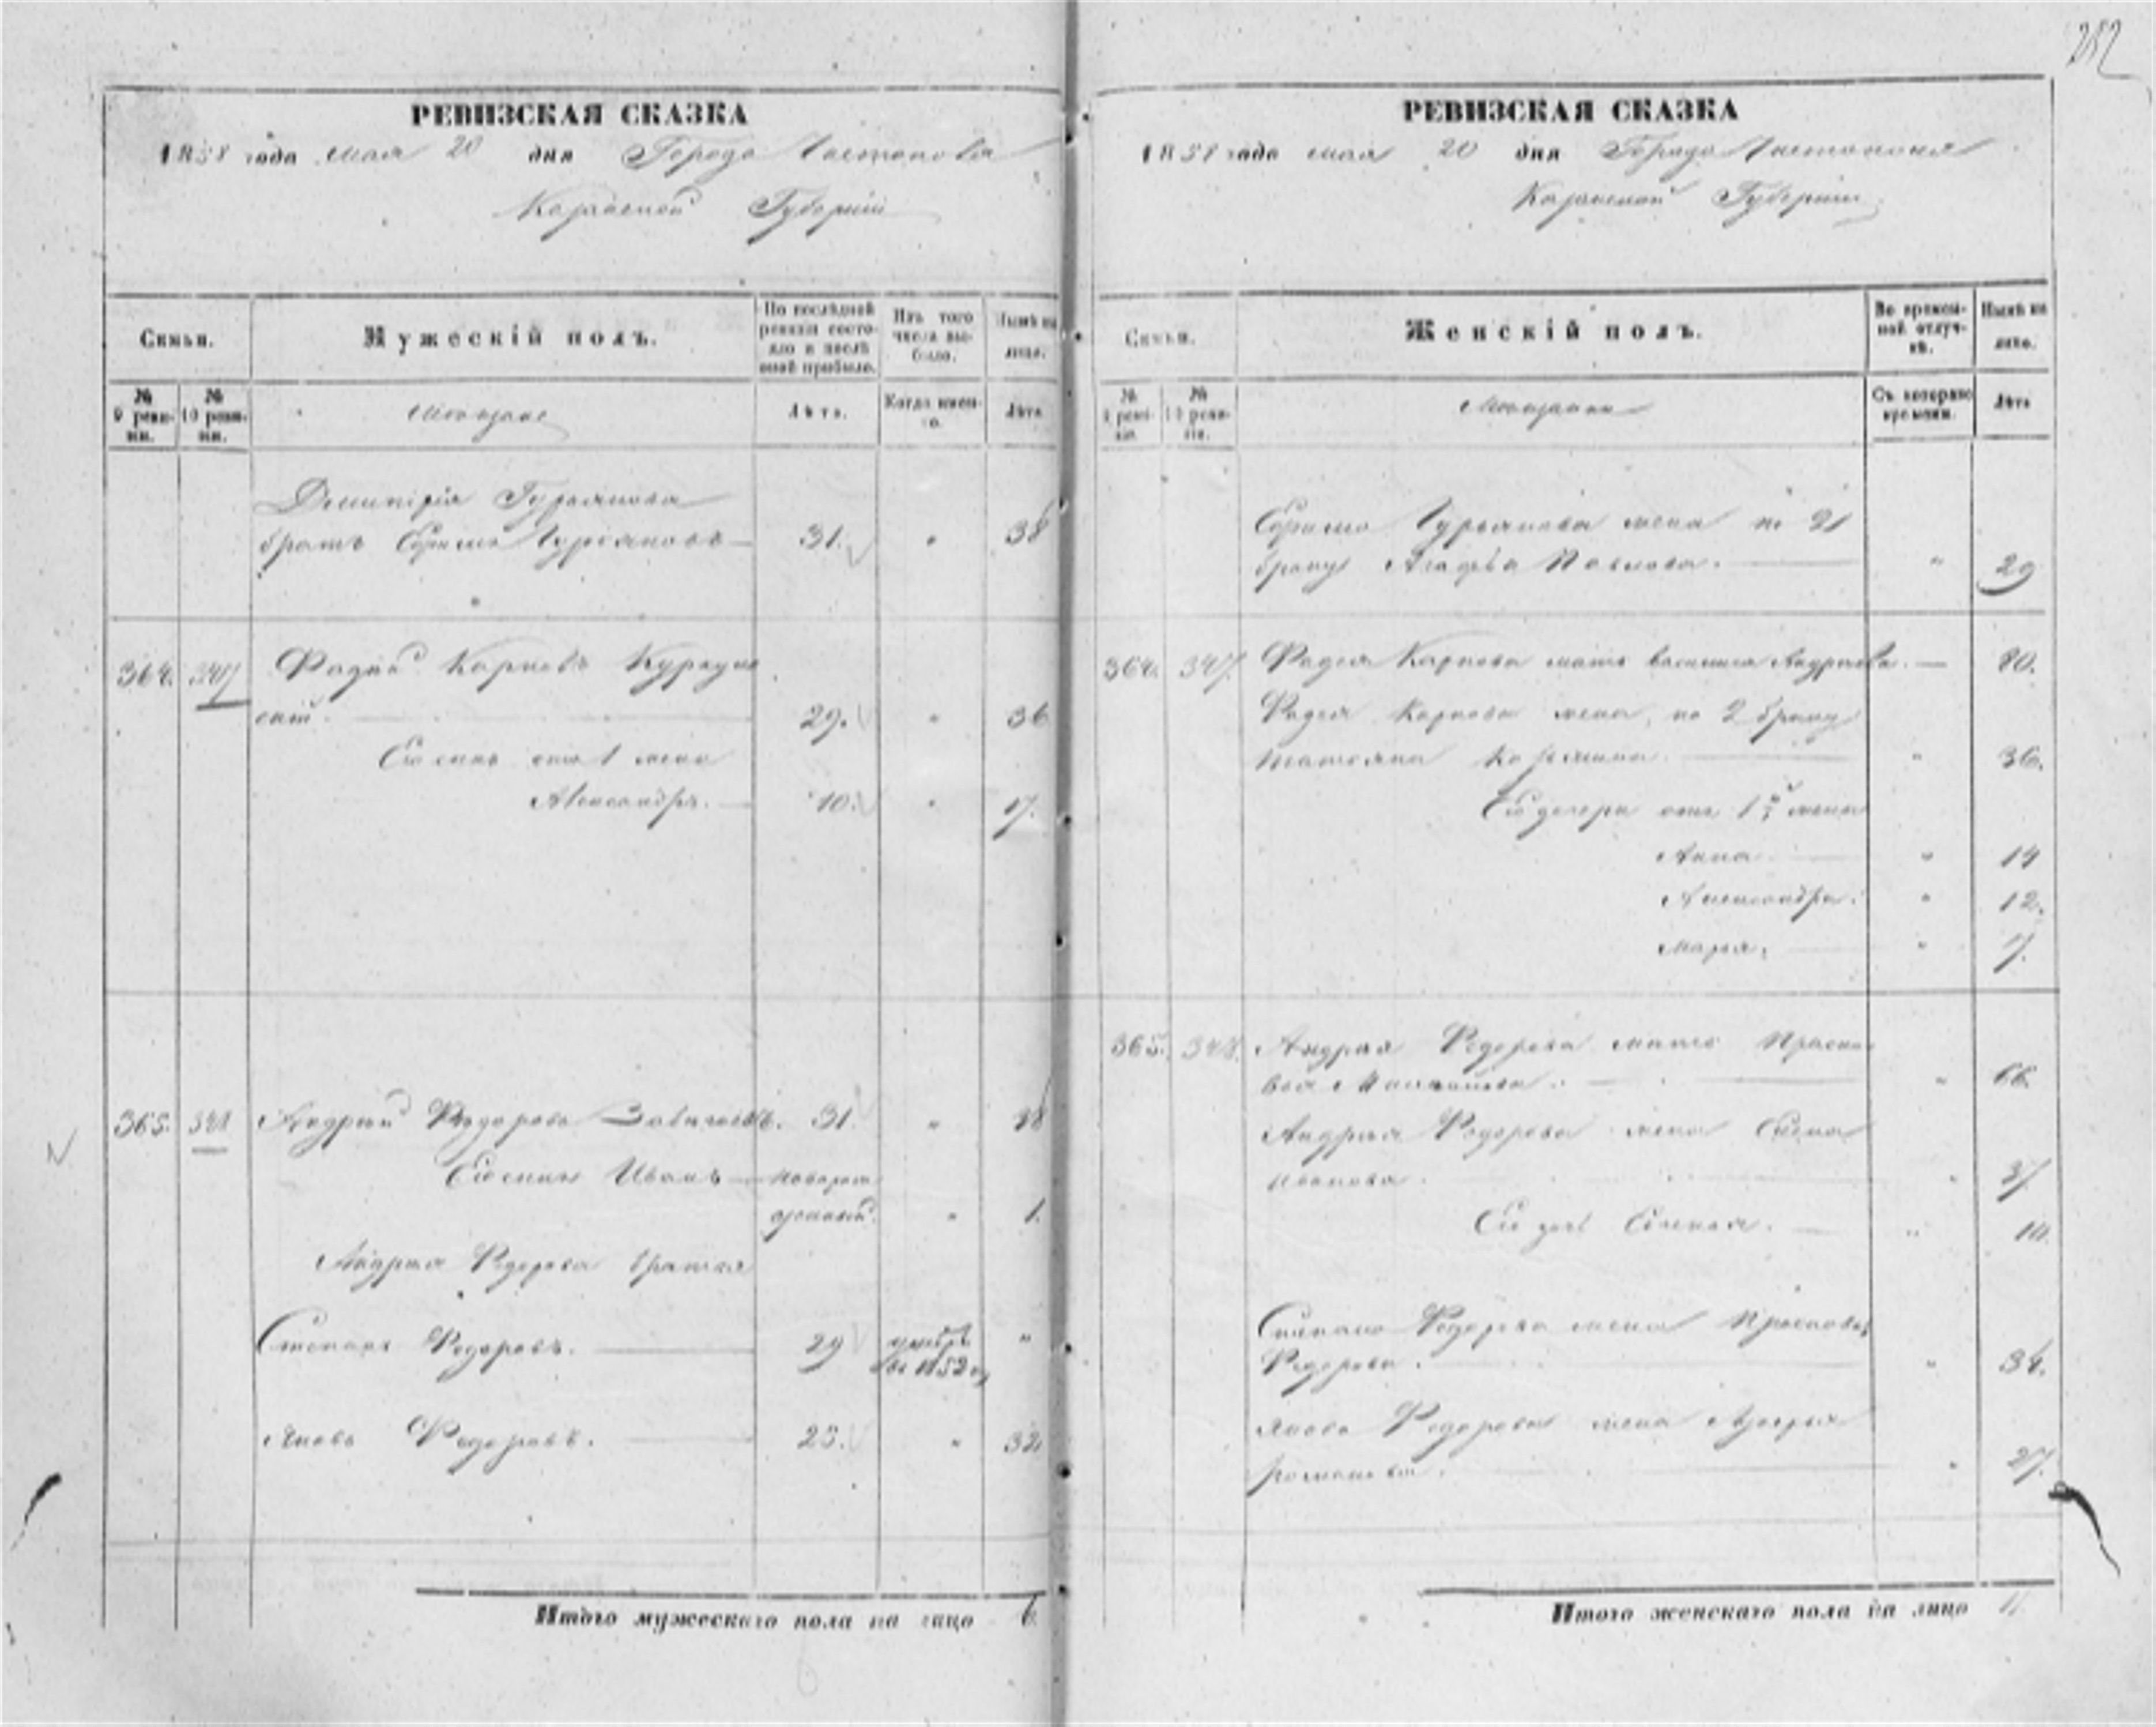 252
РЕВИЗСКАЯ СКАЗКА
1858 года мая 20 дня Города Чистополя
Казанской Губернии
Семьи.
Мужескій полъ.
По послѣдней ревизіи состояло и послѣ оной прибыло.
Изъ того числа выбыло.
Нынѣ на лицо.
№ 9 ревизіи.
№ 10 ревизіи.
Мещане
Лѣта.
Когда именно.
Лѣта
Димитрія Гурьянова
братъ Гурьяновъ 31. " 38
364. 347 Фадей Карповъ
29. " 36
Его сынъ отъ 1 жены
Александръ. 10. " 17.
365. 348 Андрей Федоровъ 31. " 38
Его сынъ Иванъ новорож
денный. " 1.
Андрея Федорова братья
Степанъ Федоровъ. 29 умеръ "
въ 1852 г.
Яковъ Федоровъ. 25. " 32
Итого мужескаго пола на лицо 6.
РЕВИЗСКАЯ СКАЗКА
1858 года мая 20 дня Города Чистополя
Казанской Губернии
Семьи.
Женскій полъ.
Во временной отлучкѣ.
Нынѣ на лицо.
№ 9 ревизіи.
№ 10 ревизіи.
Мещанки
Съ котораго времени.
Лѣта
Гурьянова жена по 2
браку Агафья Павлова. " 29
364. 347. Фадея Карпова мать Василиса Андреева. 80.
Фадея Карпова жена, по 2 браку
Татьяна " 36.
Его дочери отъ 1й жены
Анна " 14
Александра. " 12.
Марья. " 7.
365. 348. Андрея Федорова мать Праско
вья " 66.
Андрея Федорова жена
Иванова. " 37.
Его дочь Евгения. " 10.
Степана Федорова жена Прасковья
Федорова. " 34.
Якова Федорова жена
Романова. " 27.
Итого женскаго пола на лицо 11